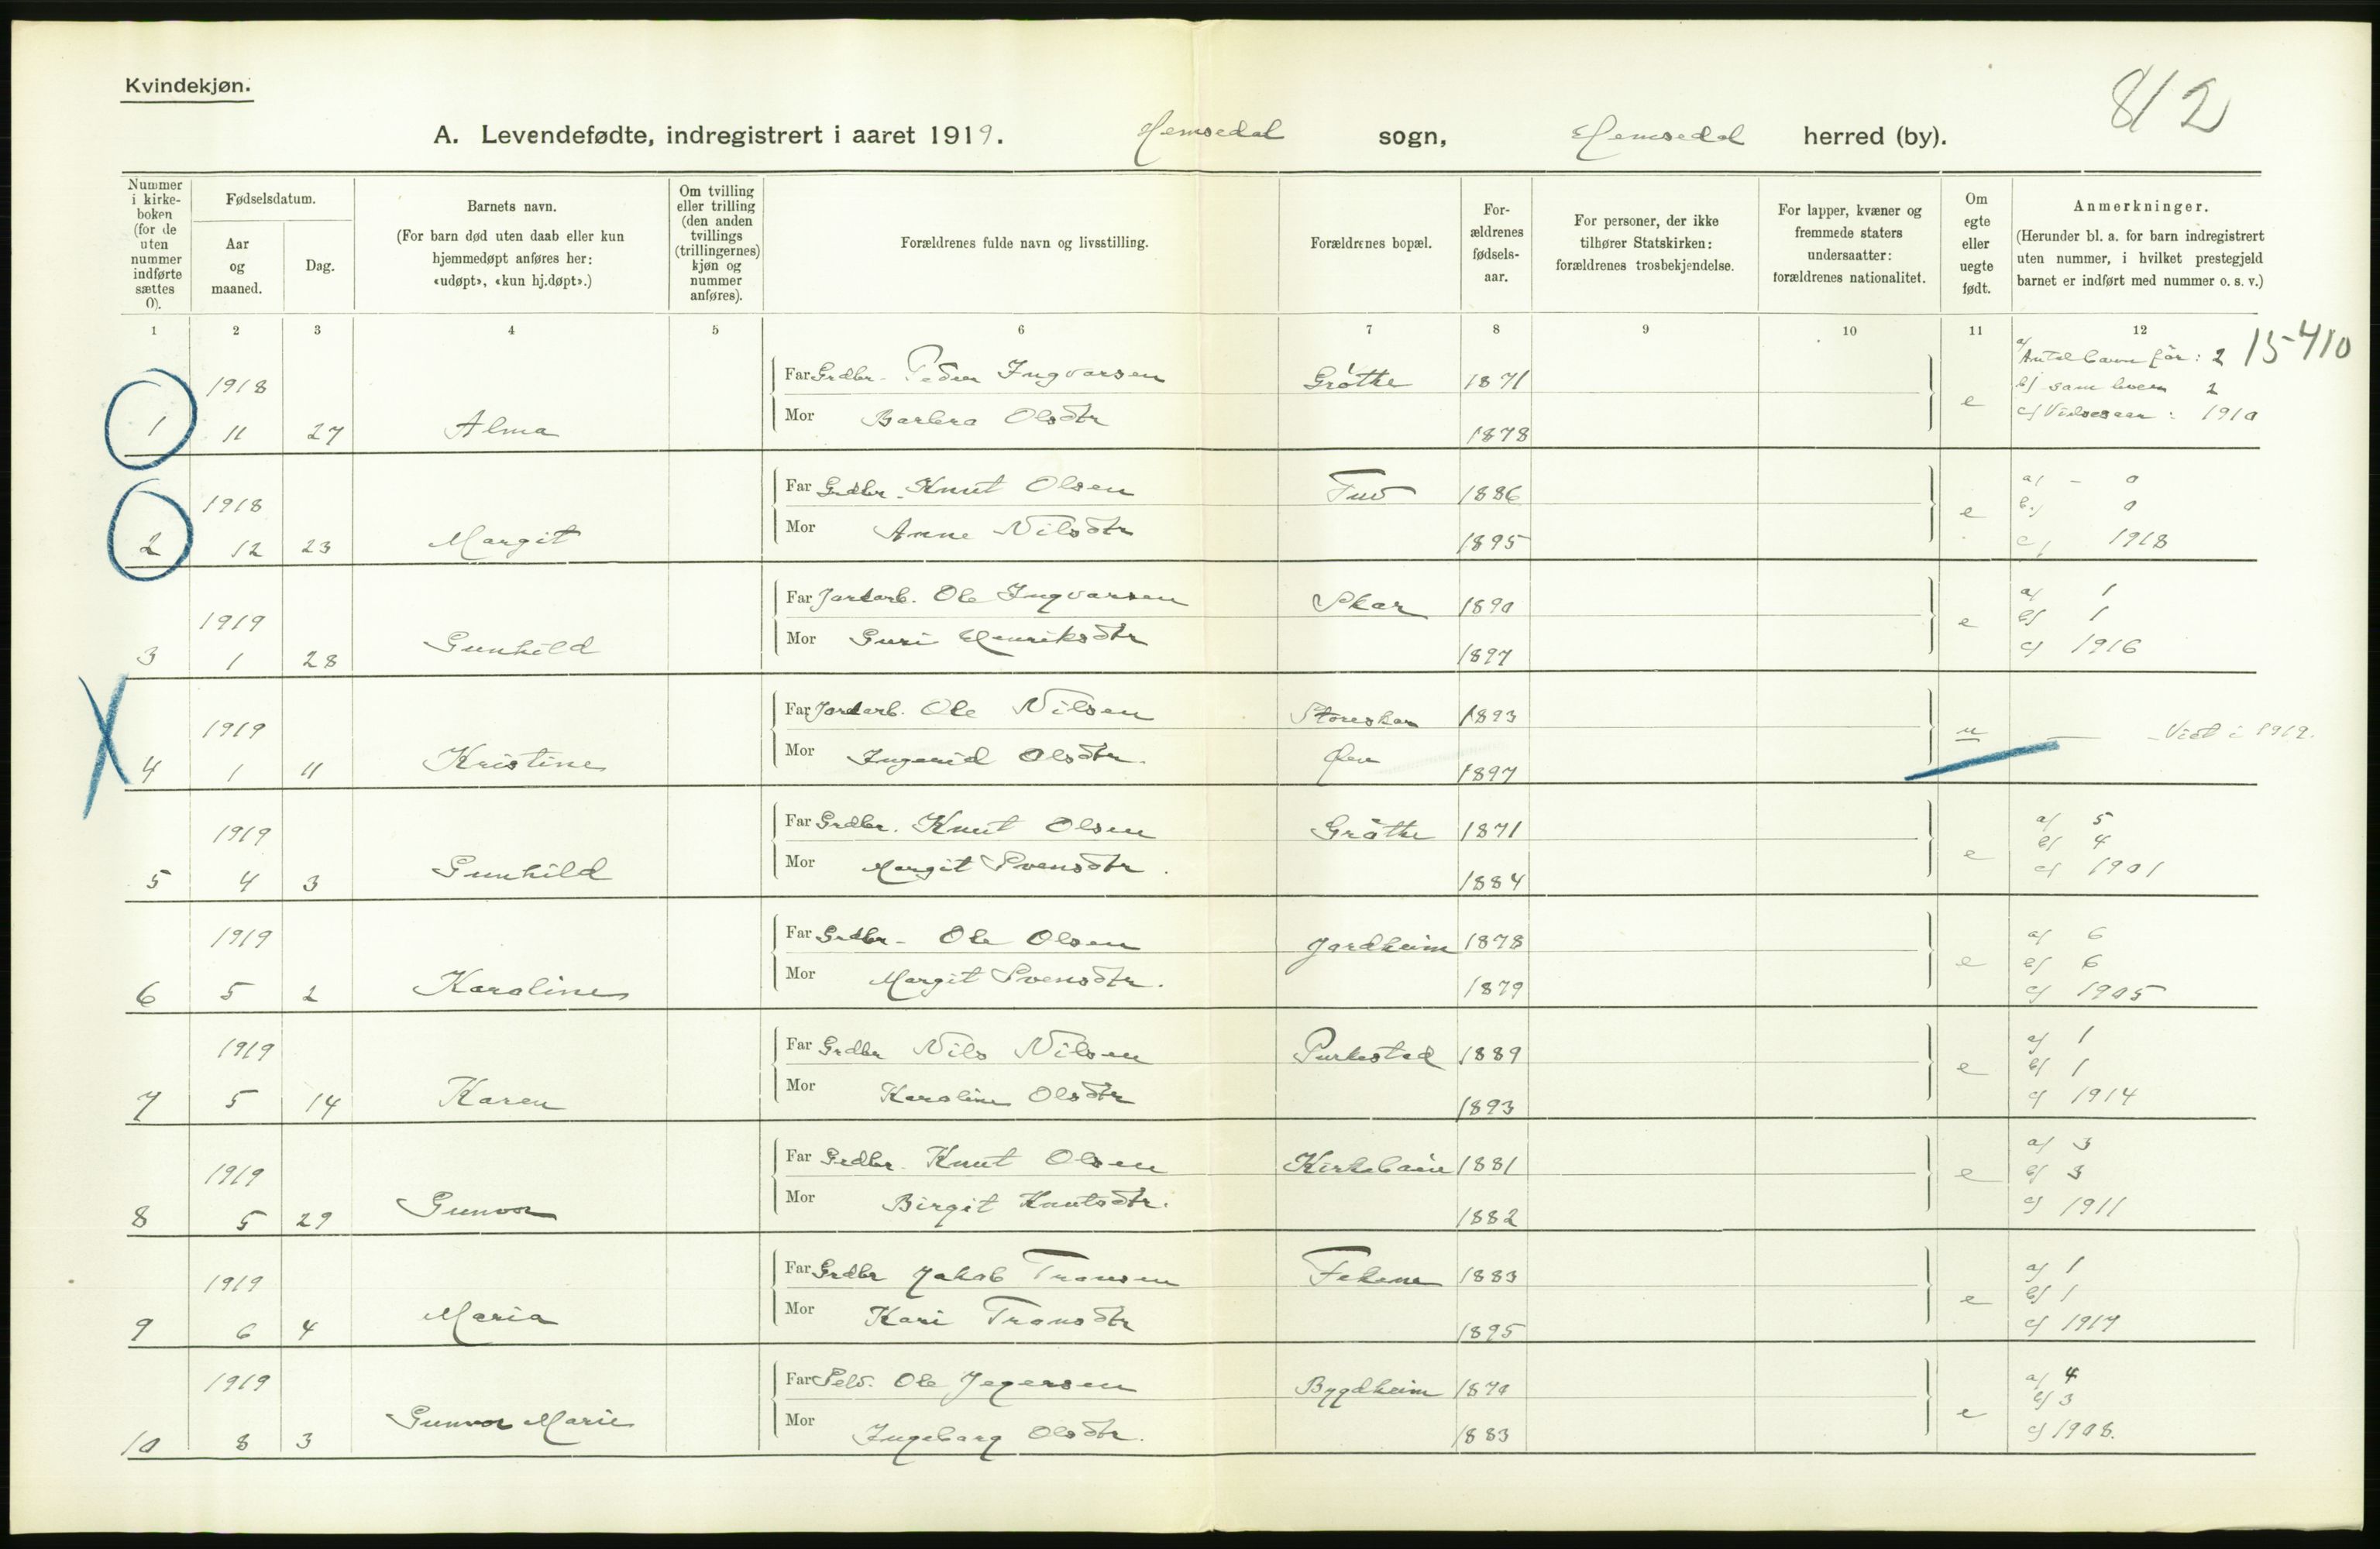 Kvindekjøn.
812
A. Levendefødte, indregistrert i aaret 1919. Hemsedal sogn, Hemsedal herred (by).
Nummer i kirke-boken (for de uten nummer indførte sættes 0).
Fødselsdatum.
Aar og maaned.
Dag.
Barnets navn.
(For barn død uten daab eller kun hjemmedøpt anføres her: «udøpt», «kun hj.døpt».)
Om tvilling eller trilling (den anden tvillings (trillingernes) kjøn og nummer anføres).
Forældrenes fulde navn og livsstilling.
Forældrenes bopæl.
For-ældrenes fødsels-aar.
For personer, der ikke tilhører Statskirken: forældrenes trosbekjendelse.
For lapper, kvæner og fremmede staters undersaatter: forældrenes nationalitet.
Om egte eller uegte født.
Anmerkninger.
(Herunder bl. a. for barn indregistrert uten nummer, i hvilket prestegjeld barnet er indført med nummer o. s. v.)
1 2 3 4 5 6 7 8 9 10 11 12
15-410
1 1918 11 27 Alma
Far Grdbr. Peder Ingvarsen Grøthe 1871
Mor Barbra Olsdtr 1878
e
a) Antal barn før: 2
b) sam leven 2
c) Vielsesaar: 1910
2 1918 12 23 Margit
Far Grdbr. Knut Olsen Tuv 1886
Mor Anne Nilsdtr 1895
e
a) - 0
b) 0
c) 1918
3 1919 1 28 Gunhild
Far Jordarb. Ole Ingvarsen Skar 1890
Mor Guri Henriksdtr 1897
e
a) 1
b) 1
c) 1916
4 1919 1 11 Kristine
Far Jordarb. Ole Nilsen Storeskar 1893
Mor Ingerid Olsdtr. Øen 1897
u — Viet i 1919.
5 1919 4 3 Gunhild
Far Grdbr. Knut Olsen Grøthe 1871
Mor Margit Svensdtr. 1884
e
a) 5
b) 4
c) 1901
6 1919 5 2 Karoline
Far Grdbr - Ole Olsen Jordheim 1878
Mor Margit Svensdtr. 1879
e
a) 6
b) 6
c) 1905
7 1919 5 14 Karen
Far Grdbr Nils Nilsen Purkestad 1889
Mor Karoline Olsdtr 1893
e
a) 1
b) 1
c) 1914
8 1919 5 29 Gunvor
Far Grdbr. Knut Olsen 1881
Mor Birgit Knutsdtr. 1882
e
a) 3
b) 3
c) 1911
9 1919 6 4 Maria
Far Grdbr Jakob Tronsen Fekene 1883
Mor Kari Tronsdtr 1895
e
a) 1
b) 1
c) 1917
10 1919 8 3 Gunvor Marie
Far Ole Jegersen Bygdheim 1870
Mor Ingeborg Olsdtr. 1883
e
a) 4
b) 3
c) 1908.